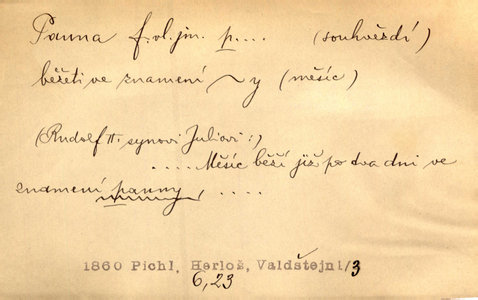 Panna f. vl. jm. p.... (souhvězdí)
běžeti ve znamení ~y (měsíc)
(Rudolf II. synovi Juliovi:)
.... Měsíc běží již po dva dni ve
znamení panny, ....
1860 Pichl, Herloš, Valdštejni/3
6,23